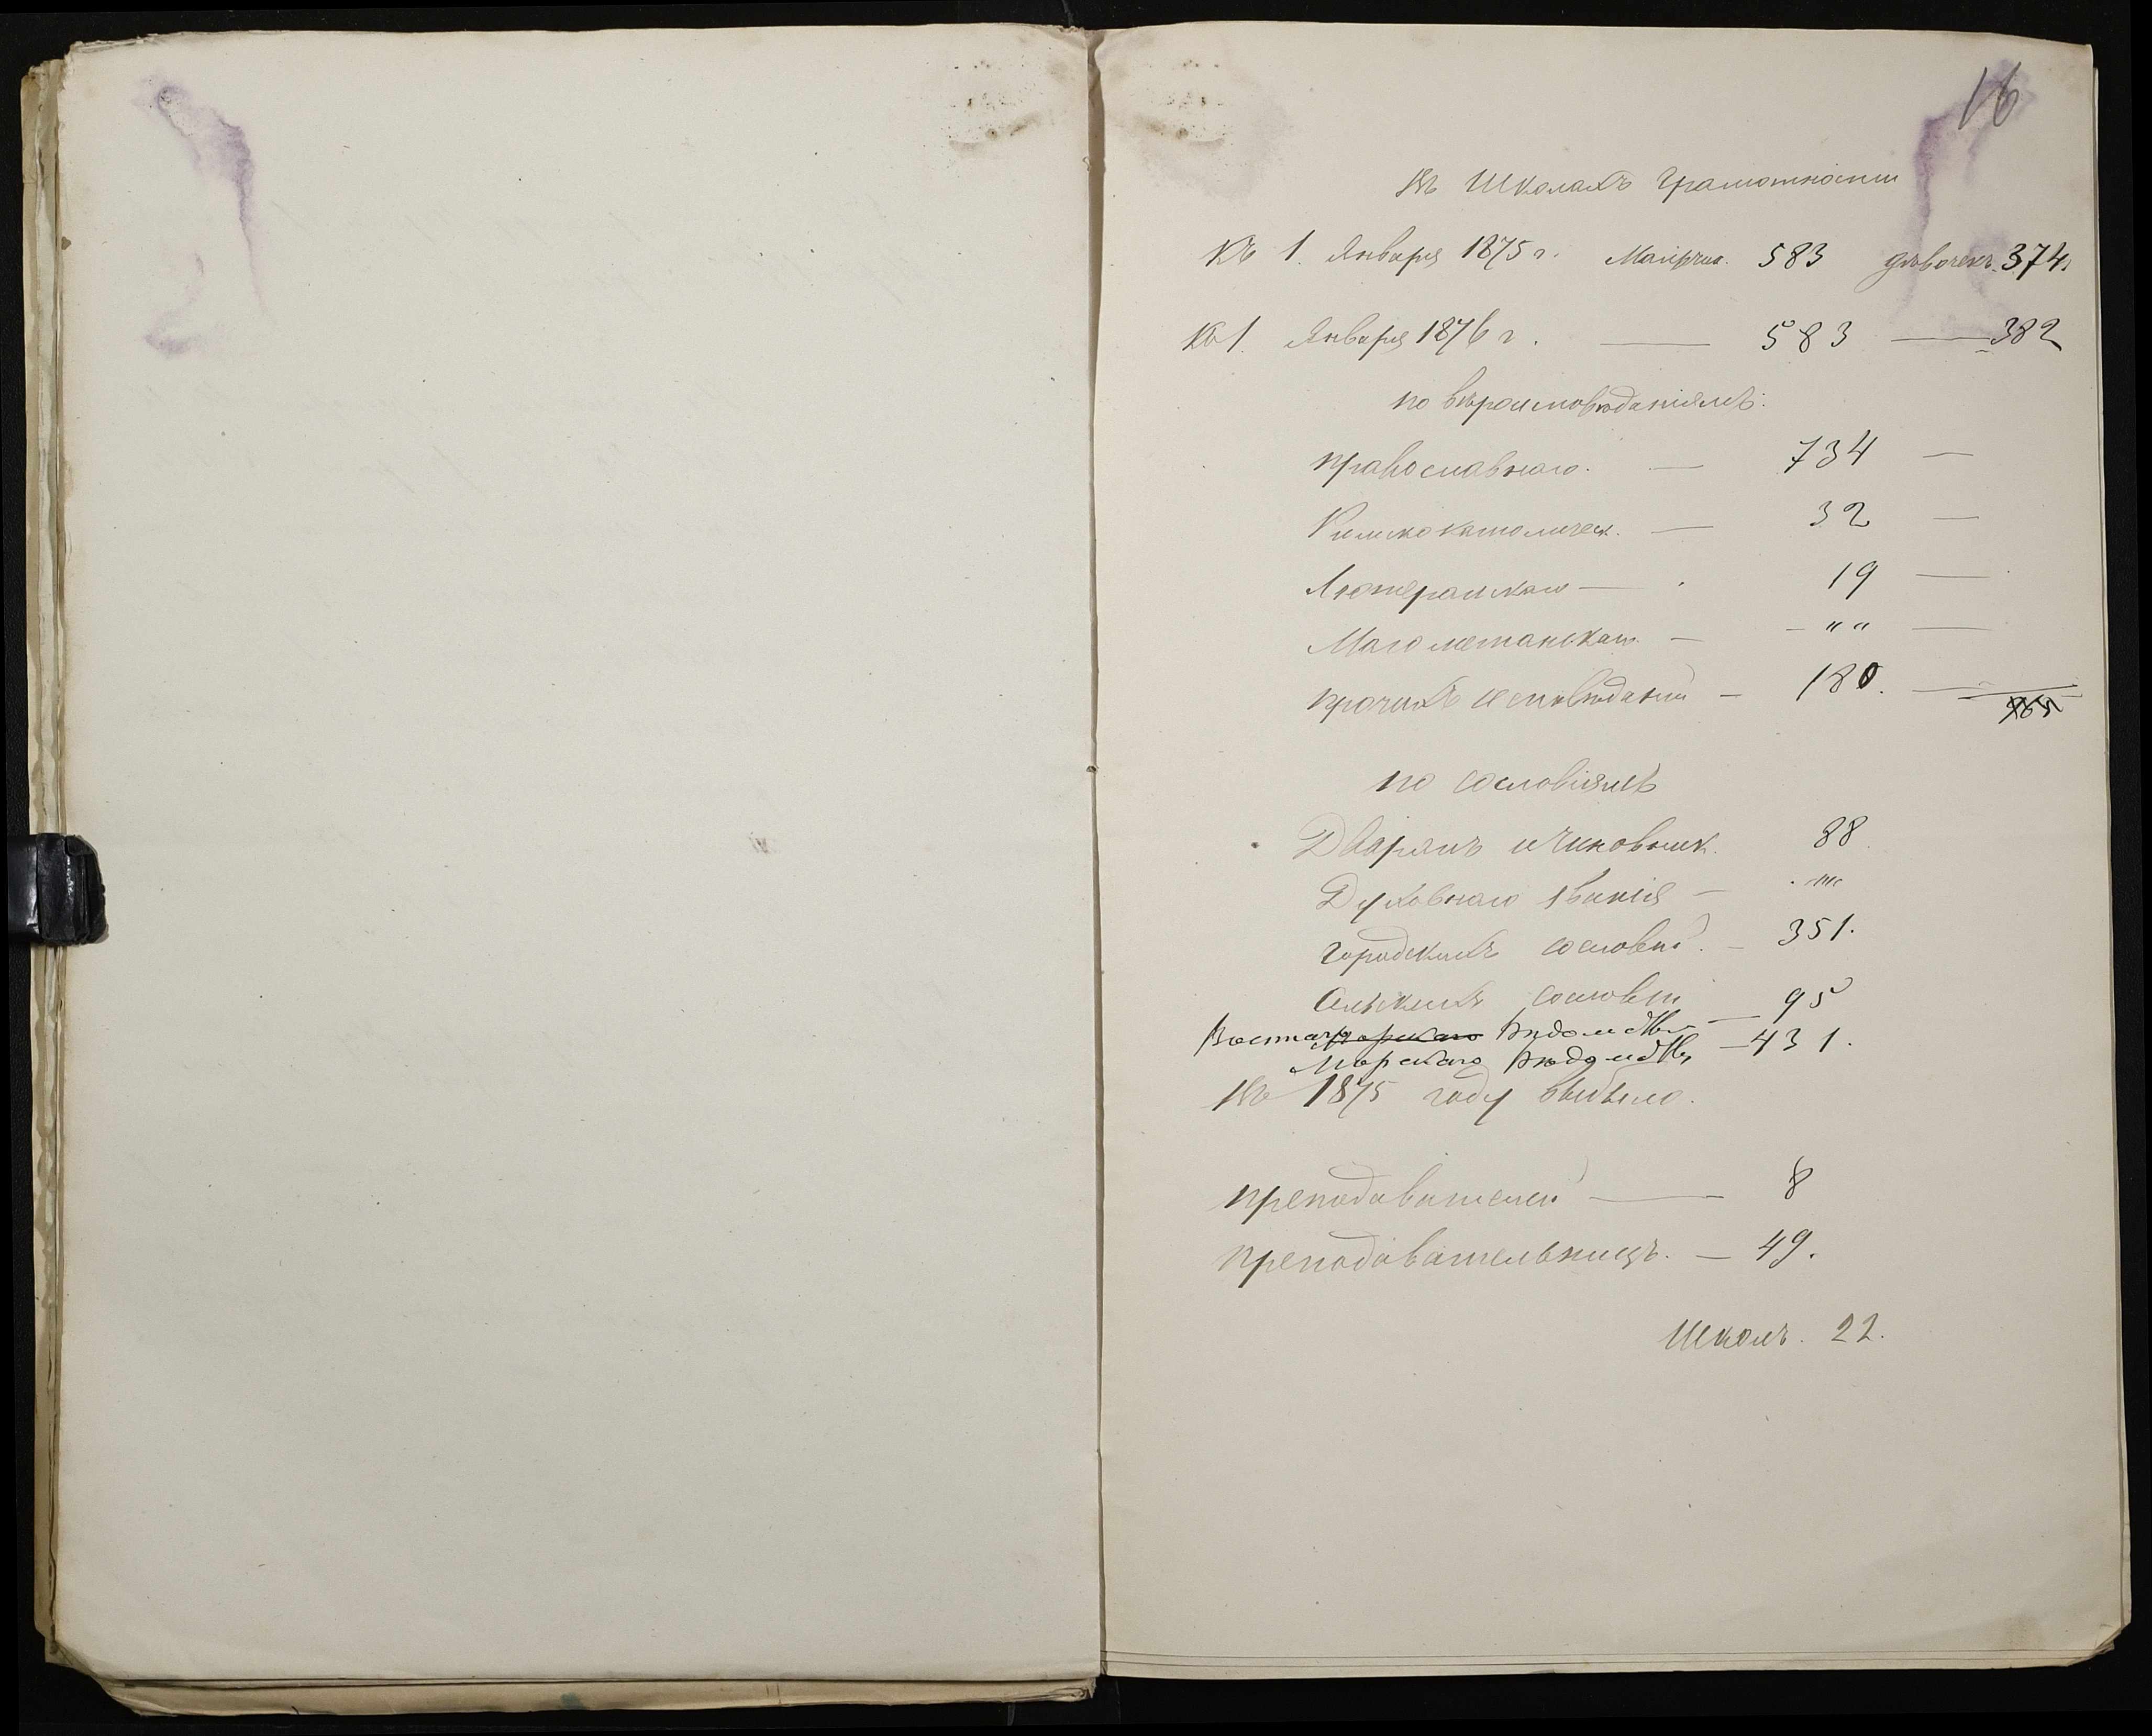 16
Въ Школахъ Грамотности
Къ 1. Января 1875 г. Мальчик. 583 девочекъ. 374
Къ 1. Января 1876 г. — 583 — 382
по вѣроисповѣданіямъ:
православнаго. — 734 —
Римскокатолическ. — 32 —
Лютеранскаго — 19 —
Магометанскаго — — „ „ —
прочихъ исповѣданій — 180. —
965
по сословіямъ
Дворянъ и чиновник. 88
Духовнаго званія — „„
Городскихъ сословій. — 351.
Сельскихъ сословій — 95
Военнаго Морскаго Вѣдомства
Морскаго Вѣдомства — 431.
Въ 1875 году выбыло.
преподавателей — 8
преподавательницъ. — 49.
Школъ. 22.